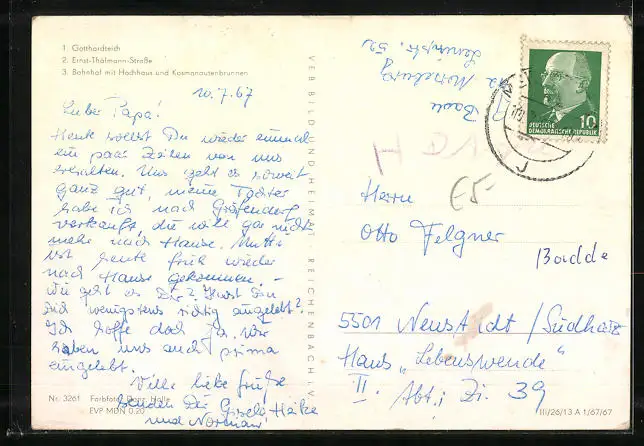 1 Gotthardteich
2. Ernst-Thälmann-Straße
3. Bahnhof mit Hochhaus und Kosmonautenbrunnen
10.7.67
Lieber Papa!
Heute sollst Du wieder einmal
ein paar Zeilen von uns
erhalten. Uns geht es soweit
ganz gut, meine Tochter
habe ich nach Gräfendorf
verkauft, die will gar nicht
mehr nach Hause. Mutti
ist heute früh wieder
nach Hause gekommen –
wie geht es Dir? Hast Du
Dich wenigstens richtig eingelebt?
Ich hoffe doch ja. Wir
haben uns auch prima
eingelebt.
Viele liebe Grüße
senden Dir Gisela Heike
und Norman
Nr. 3261 Farbfoto: Darr, Halle
EVP MDN 0.20
VEB BILD UND HEIMAT REICHENBACH i. V.
Merseburg
52
10
DEUTSCHE
DEMOKRATISCHE REPUBLIK
E5-
Herrn
Otto Felgner
Badde
5501 Neustadt/Südharz
Haus „Lebenswende"
II. Abt; Zi. 39
III/26/13 A 1/67/67